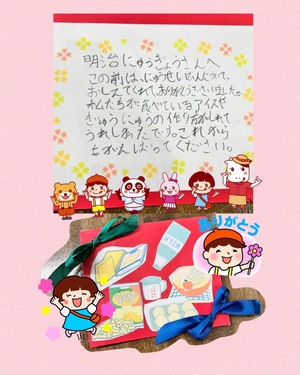 明治にゅうぎょうさんへ
この前は、にゅうせいひんについて、
おしえてくれて、ありがとうございました。
わたしたちが食べているアイスや
ぎゅうにゅうの作り方がしれて
うれしかったです。これから
もがんばってください。
ありがとう
MILK